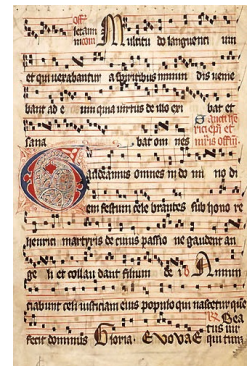 off.
Multitudo languenti um
et qui vexabantur a spiritibus inmun dis venie
bant ad e um quia virtus de illo exi bat et
sana bat om nes
Gaudeamus omnes in do mi no di
em festum cele brantes sub hono re
henrici martyris de cuius passio ne gaudent an
ge li et collau dant filium de i Annun
ciabunt celi iusticiam eius populo qui nascetur que
fecit dominus Gloria Evovae